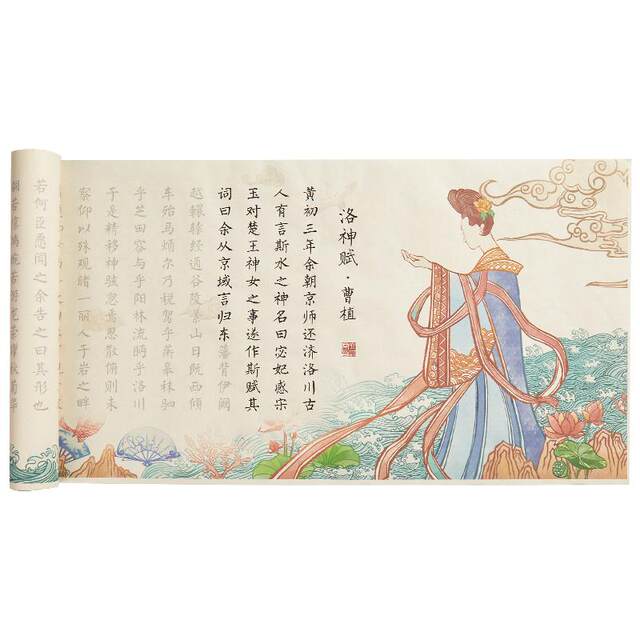 洛神赋·曹植
黄初三年余朝京师还济洛川古
人有言斯水之神名曰宓妃感宋
玉对楚王神女之事遂作斯赋其
词曰余从京域言归东藩背伊阙
越轘辕经通谷陵景山日既西倾
车殆马烦尔乃税驾乎蘅皋秣驷
乎芝田容与乎阳林流眄乎洛川
于是精移神骇忽焉思散俯则未
察仰以殊观睹一丽人于岩之畔
若何臣愿闻之余告之曰其形也